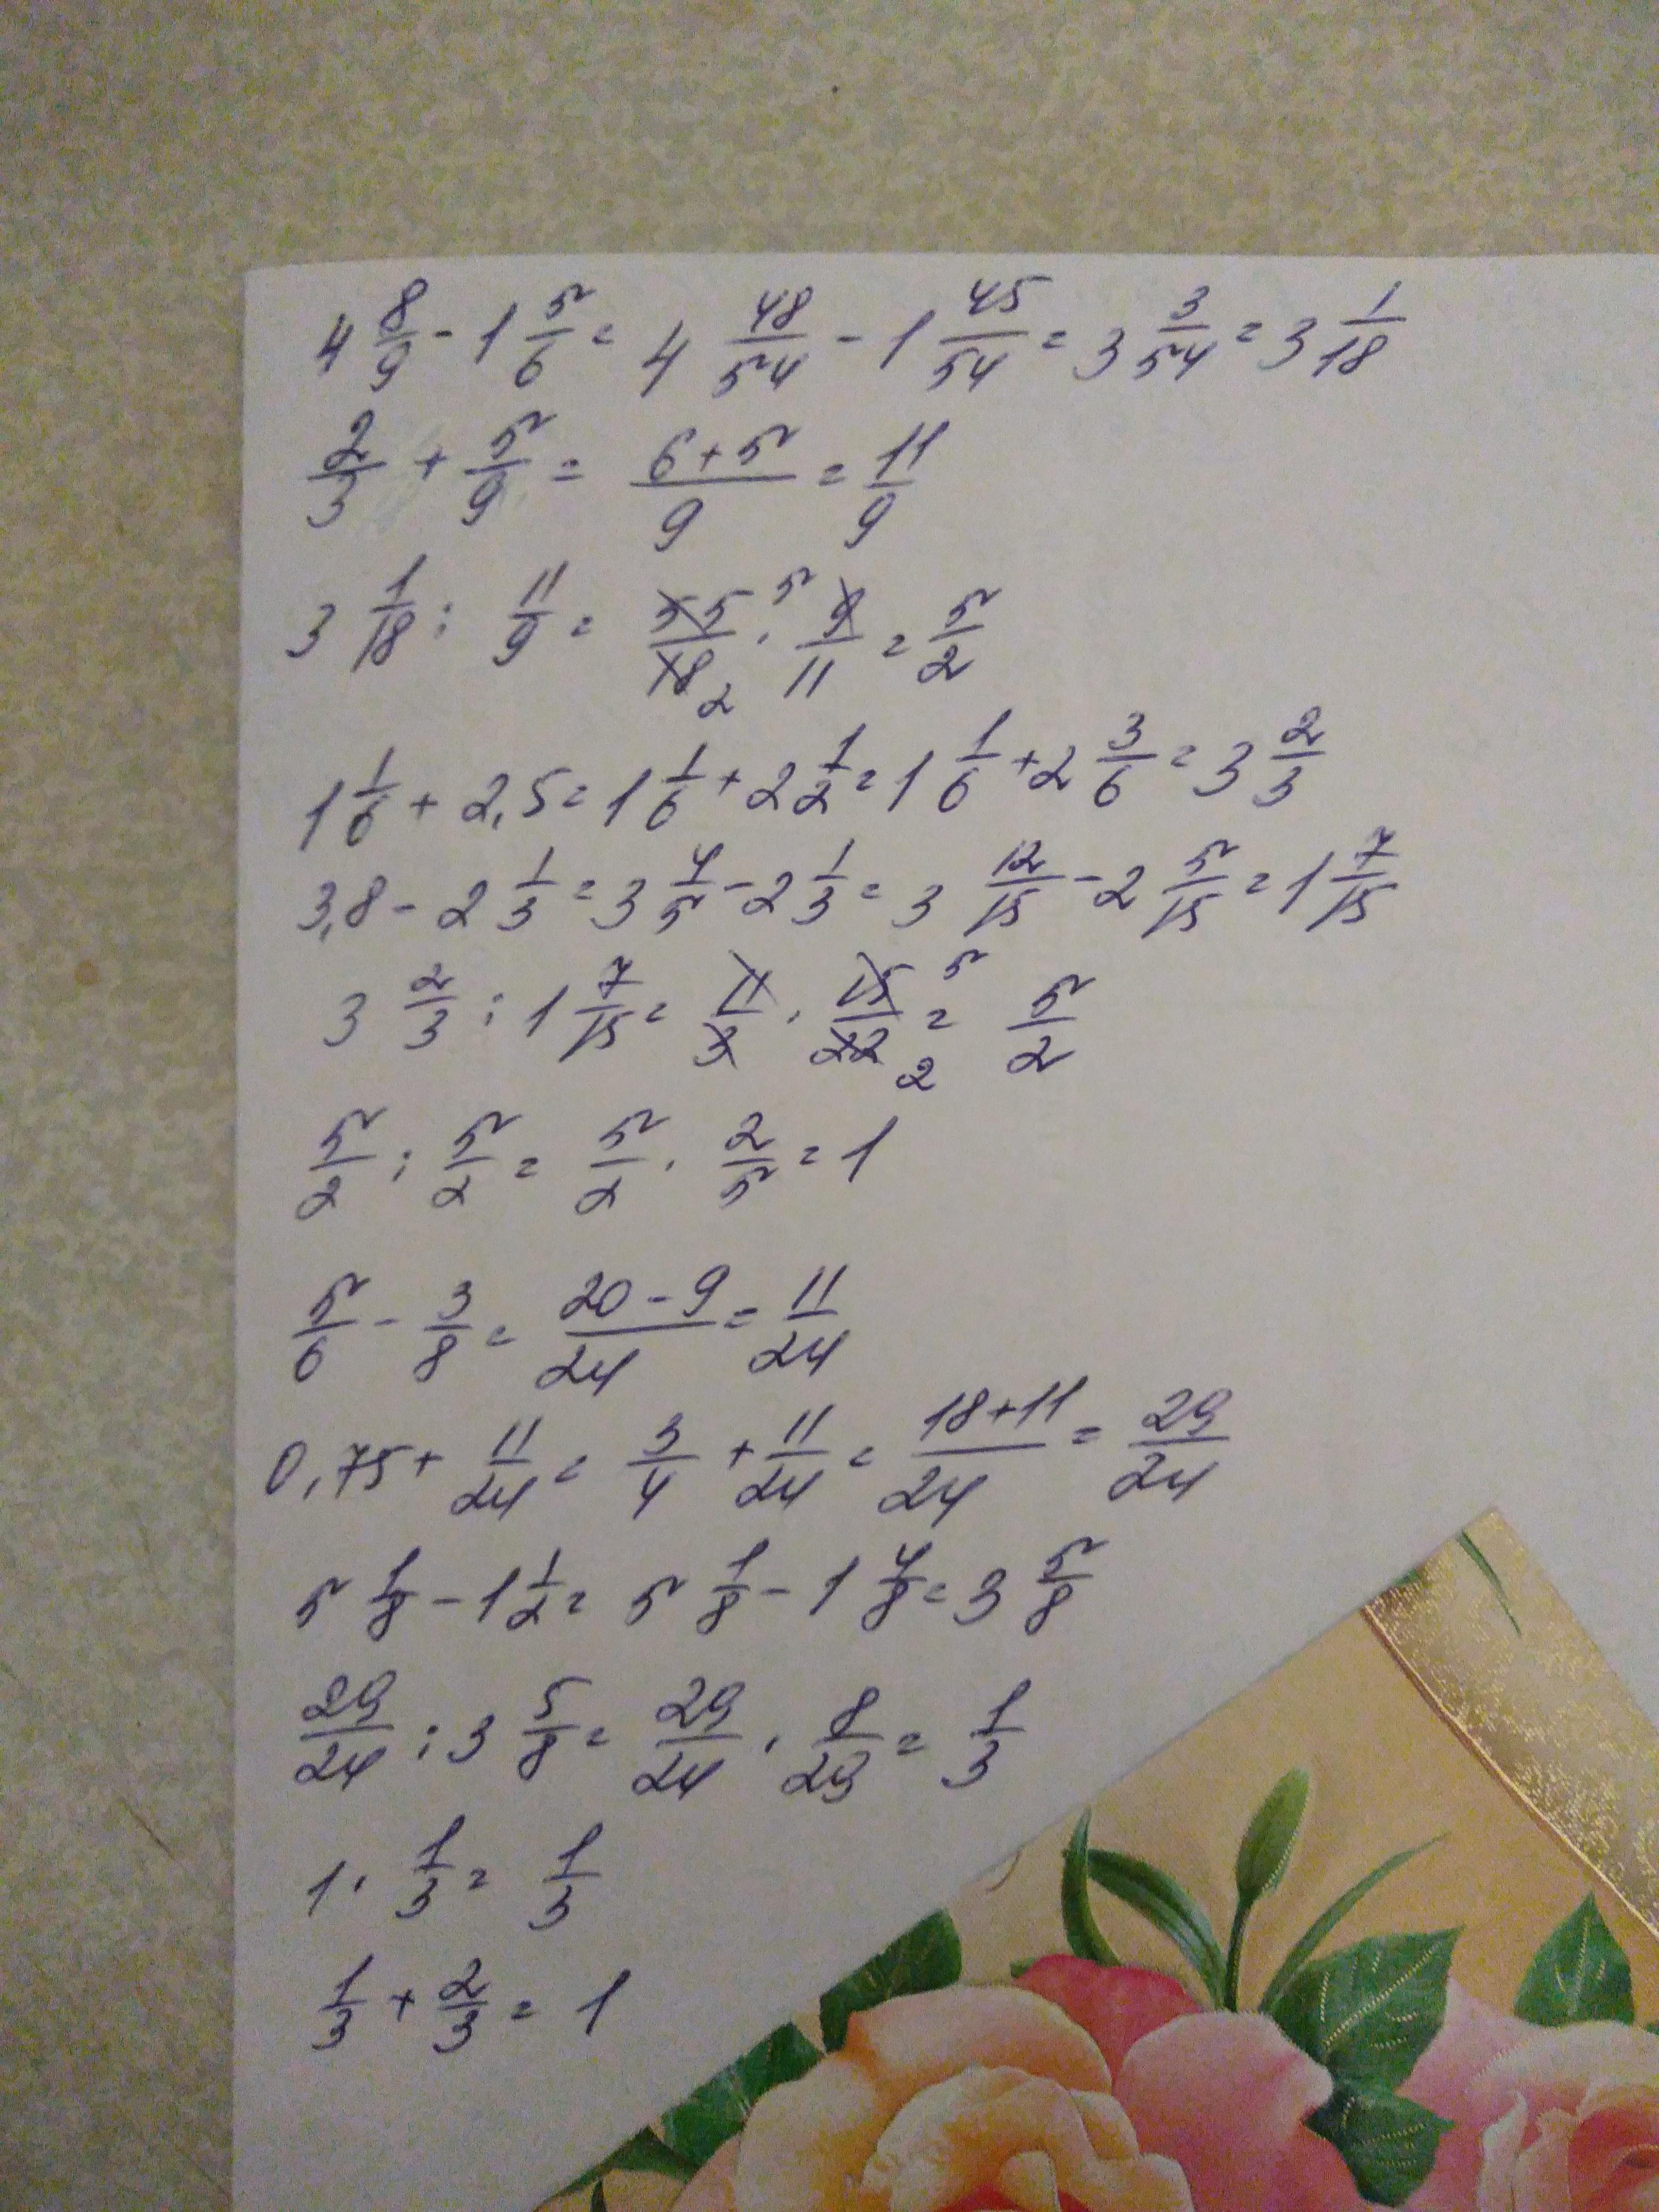 4 8/9 - 1 5/6 = 4 48/54 - 1 45/54 = 3 3/54 = 3 1/18
2/3 + 5/9 = (6+5)/9 = 11/9
3 1/18 : 11/9 = 55/18 5 2 · 9/11 = 5/2
1 1/6 + 2,5 = 1 1/6 + 2 1/2 = 1 1/6 + 2 3/6 = 3 2/3
3,8 - 2 1/3 = 3 4/5 - 2 1/3 = 3 12/15 - 2 5/15 = 1 7/15
3 2/3 : 1 7/15 = 11/3 · 15/22 5 2 = 5/2
5/2 : 5/2 = 5/2 · 2/5 = 1
5/6 - 3/8 = (20-9)/24 = 11/24
0,75 + 11/24 = 3/4 + 11/24 = (18+11)/24 = 29/24
5 1/8 - 1 1/2 = 5 1/8 - 1 4/8 = 3 5/8
29/24 : 3 5/8 = 29/24 · 8/29 = 1/3
1 · 1/3 = 1/3
1/3 + 2/3 = 1